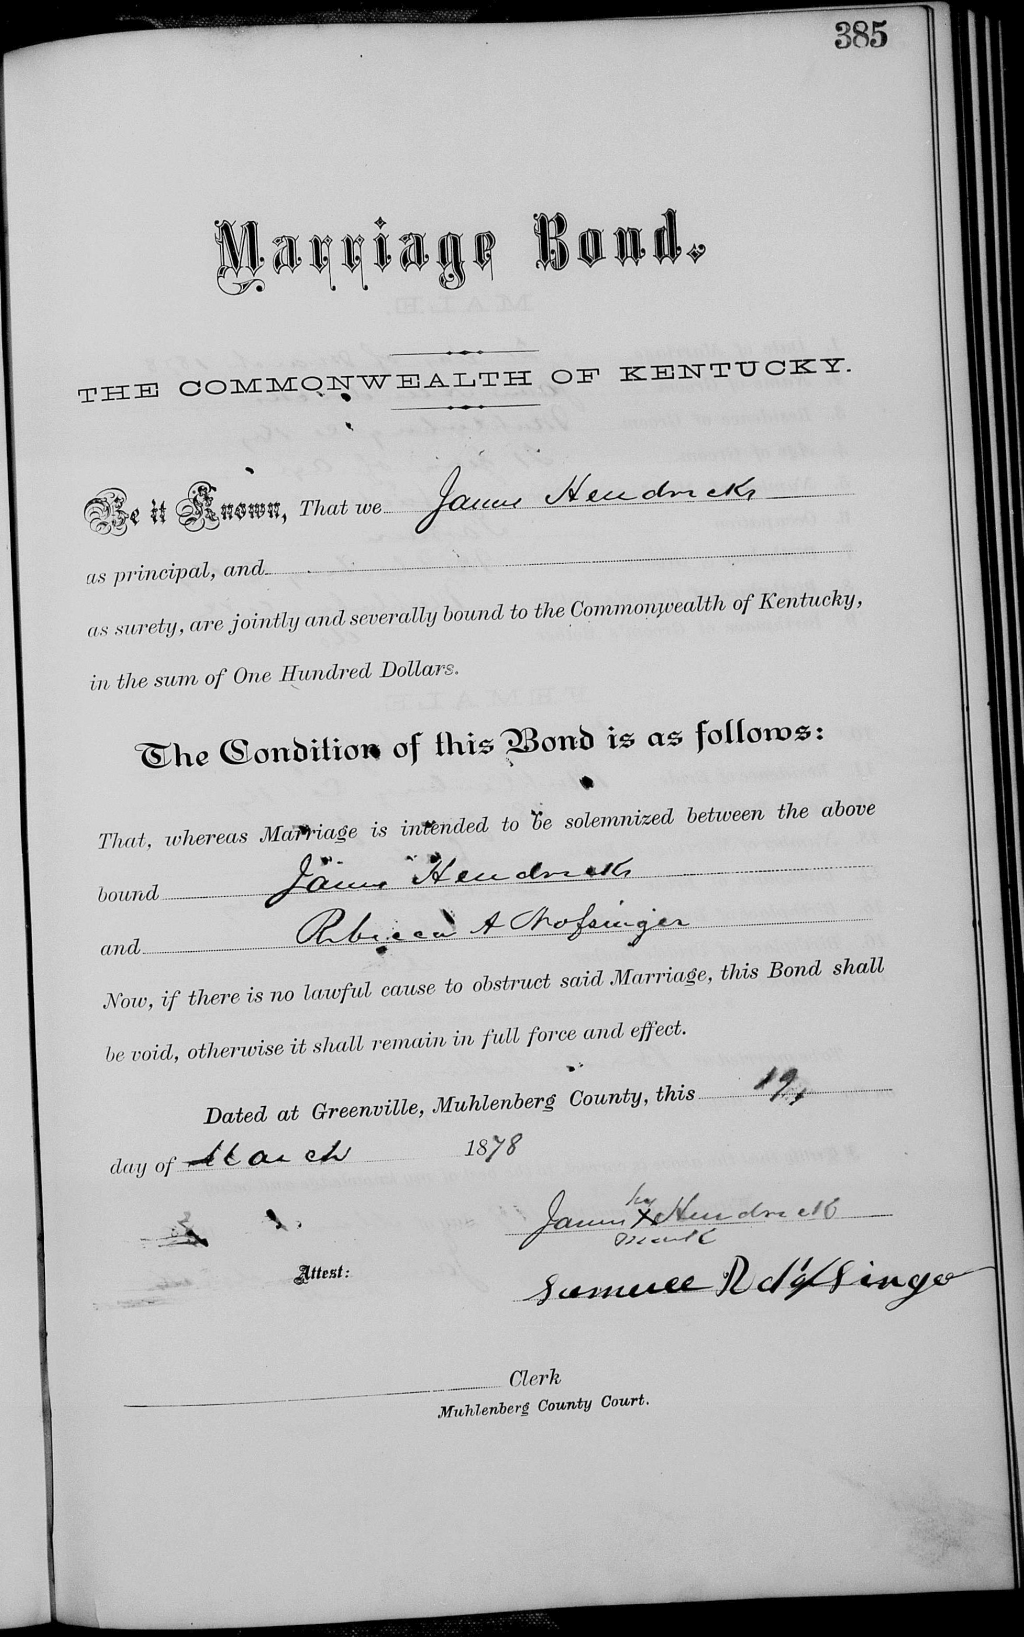 385
Marriage Bond.
THE COMMONWEALTH OF KENTUCKY.
Be it Known, That we James Hendricks
as principal, and
as surety, are jointly and severally bound to the Commonwealth of Kentucky,
in the sum of One Hundred Dollars.
The Condition of this Bond is as follows:
That, whereas Marriage is intended to be solemnized between the above
bound James Hendricks
and Rebecca A Nofsinger
Now, if there is no lawful cause to obstruct said Marriage, this Bond shall
be void, otherwise it shall remain in full force and effect.
Dated at Greenville, Muhlenberg County, this 19,
day of March 1878
his
James X Hendricks
mark
Attest:
Samuel
Clerk
Muhlenberg County Court.